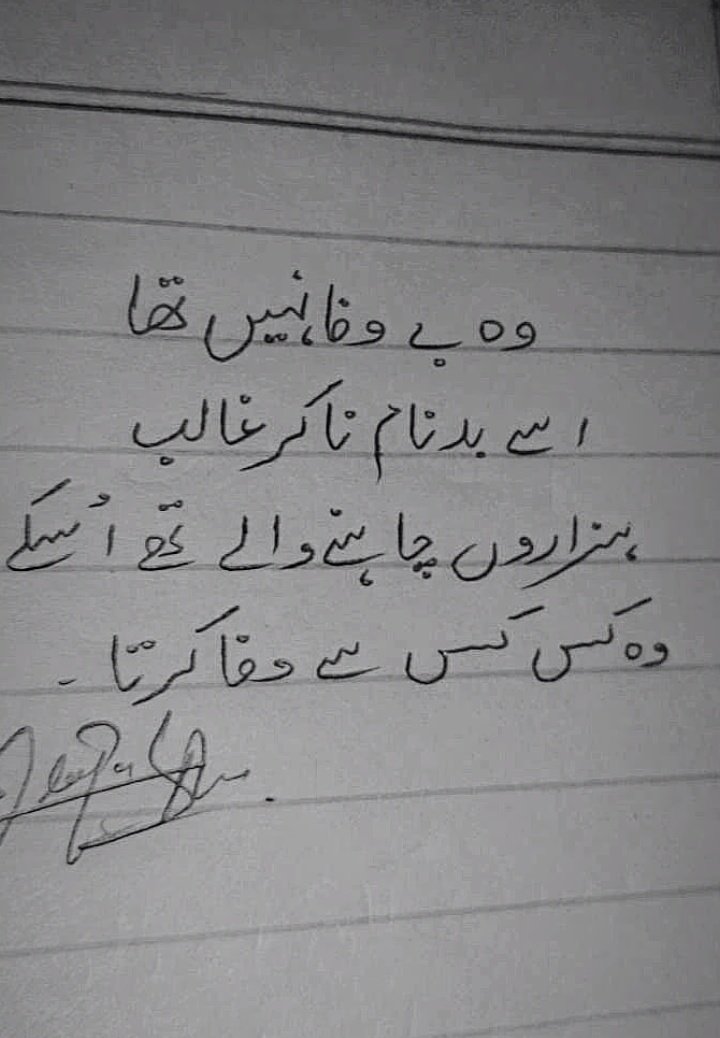 وہ بے وفا نہیں تھا
اسے بدنام نا کر غالب
ہزاروں چاہنے والے تھے اُسکے
وہ کس کس سے وفا کرتا ۔